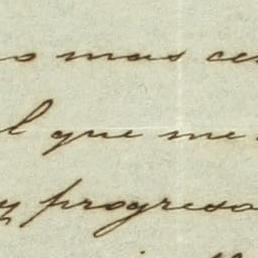 o mas ce
l que me
y progresa